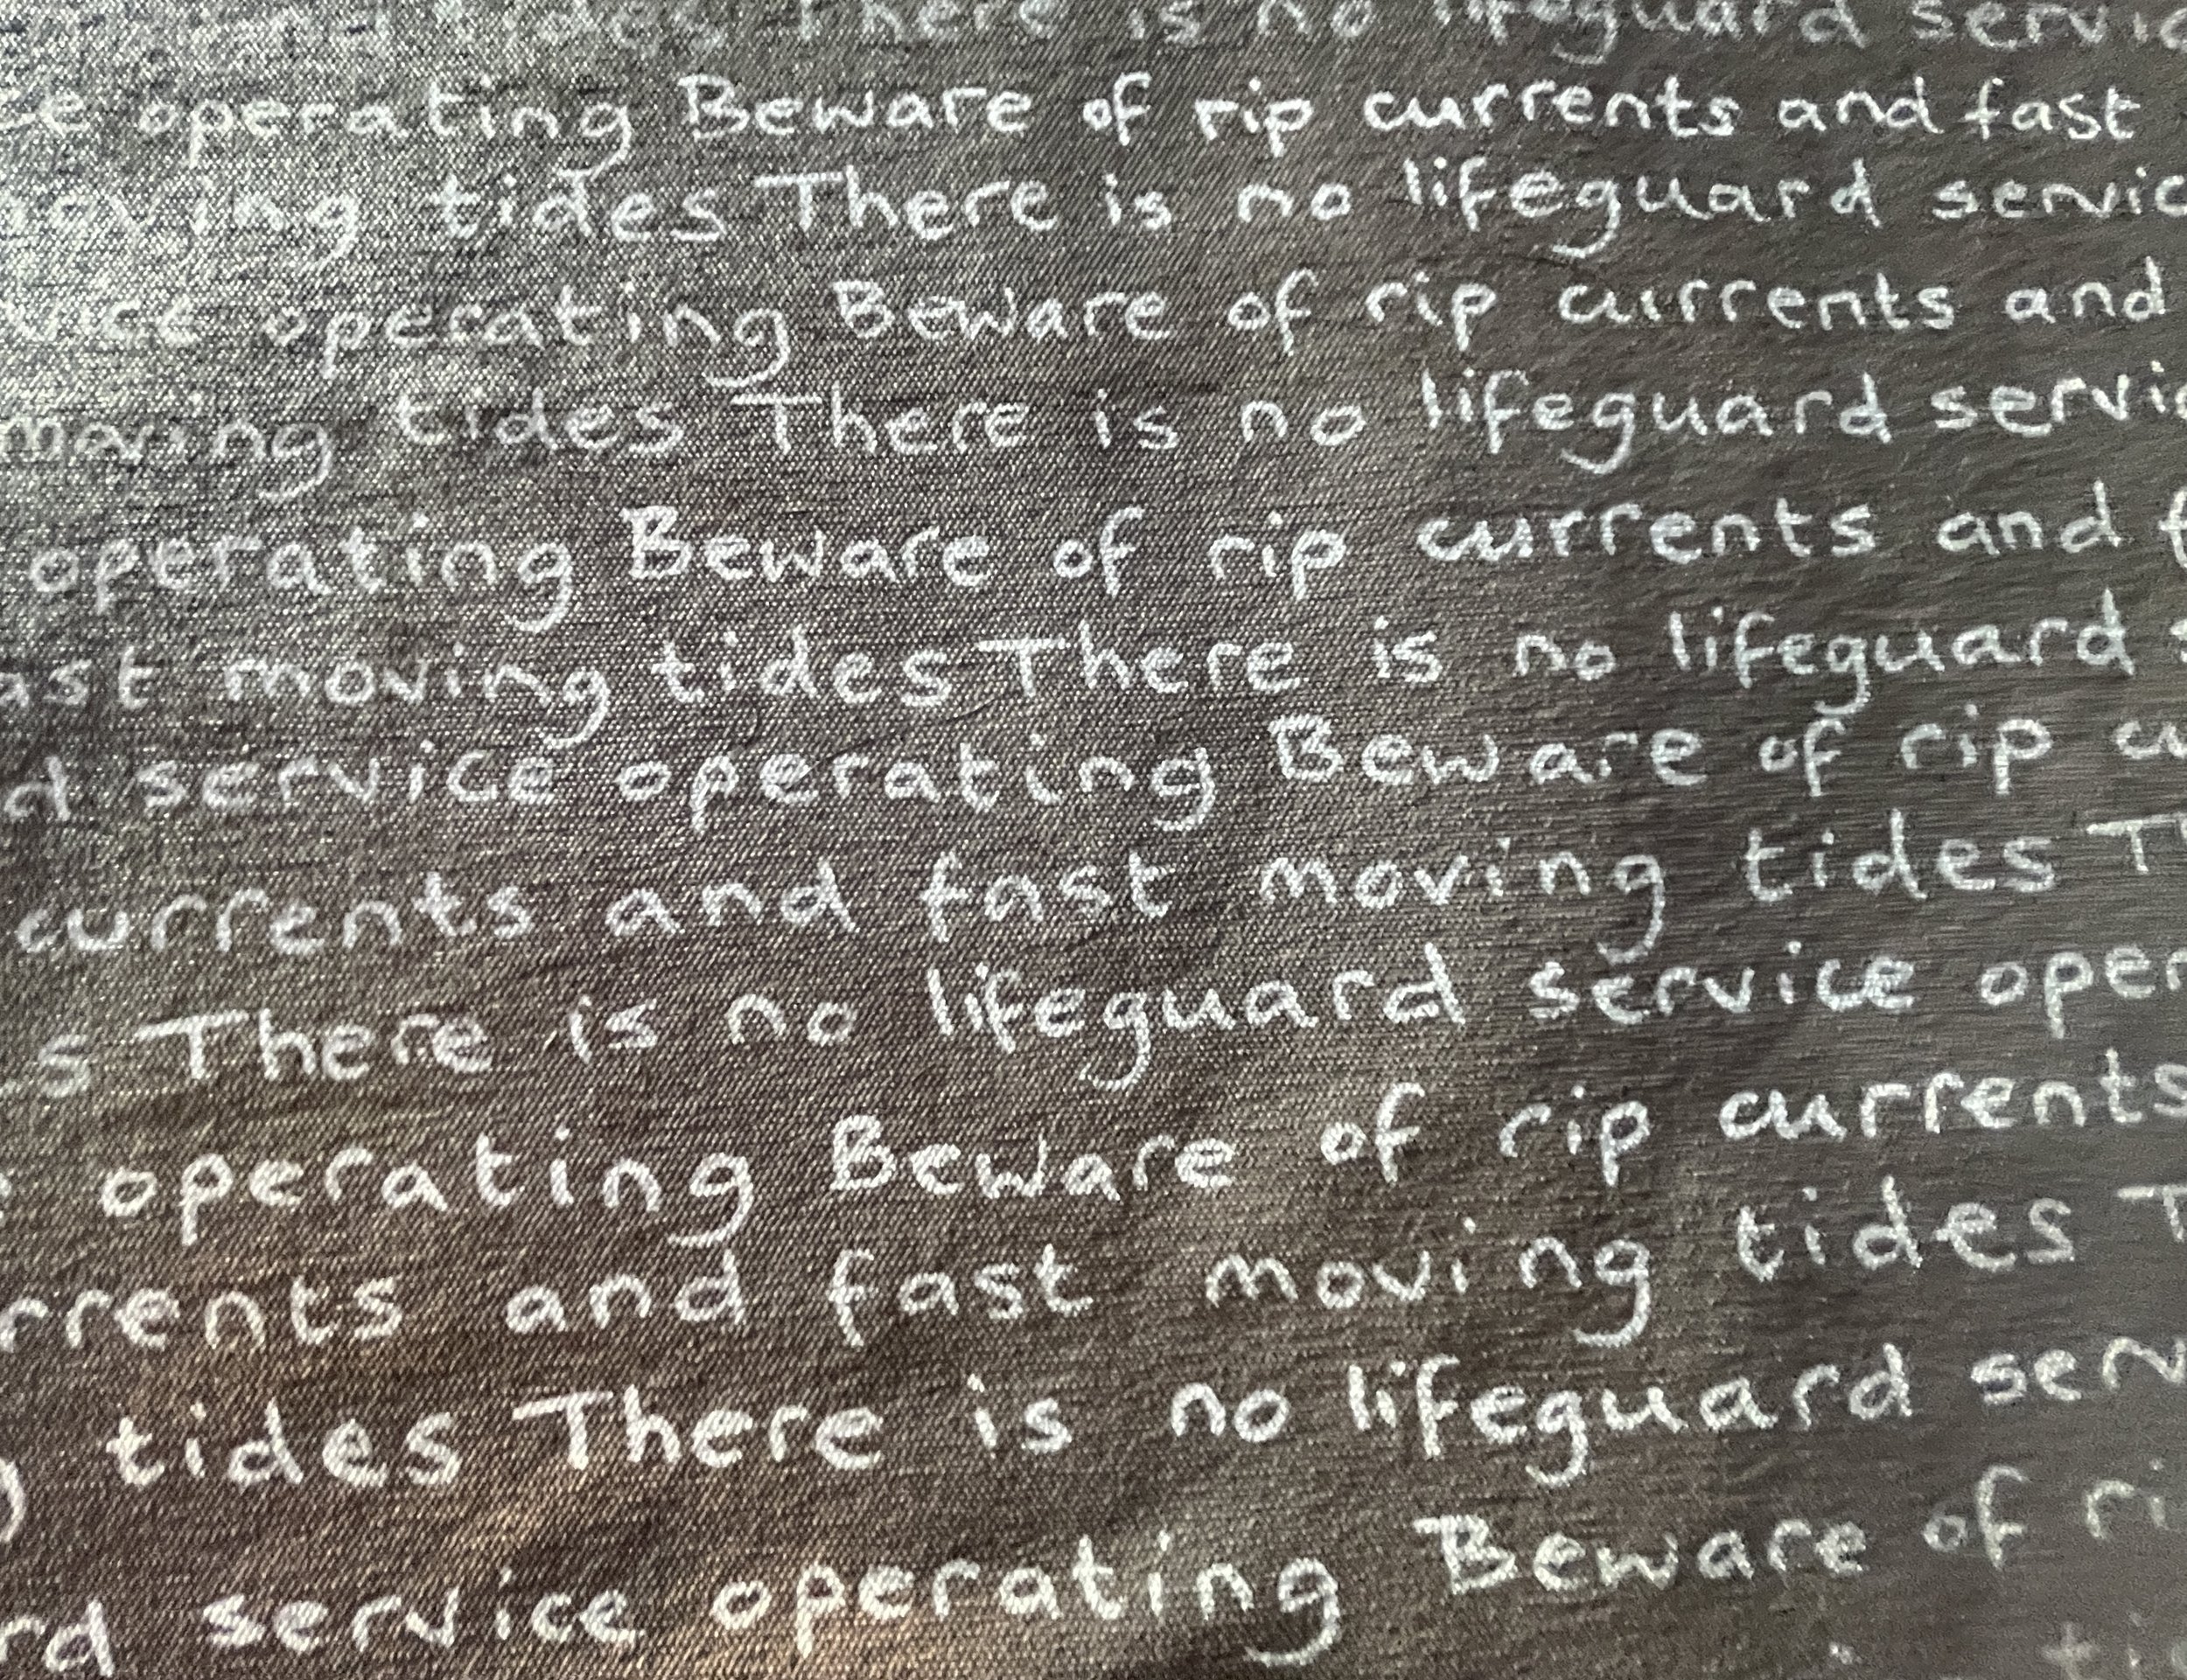 and tides There is no lifeguard servic
ce operating Beware of rip currents and fast
moving tides There is no lifeguard servic
vice operating Beware of rip currents and
moving tides There is no lifeguard servic
operating Beware of rip currents and f
ast moving tides There is no lifeguard s
d service operating Beware of rip cu
currents and fast moving tides Th
s There is no lifeguard service oper
e operating Beware of rip currents
rrents and fast moving tides T
g tides There is no lifeguard serv
rd service operating Beware of ri